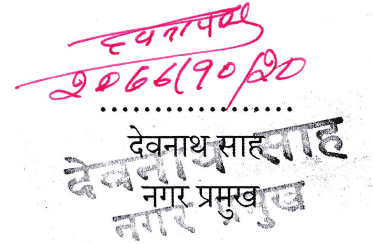 २०७७/१०/२०
...................
देवनाथ साह
नगर प्रमुख
देवनाथ साह
नगर प्रमुख